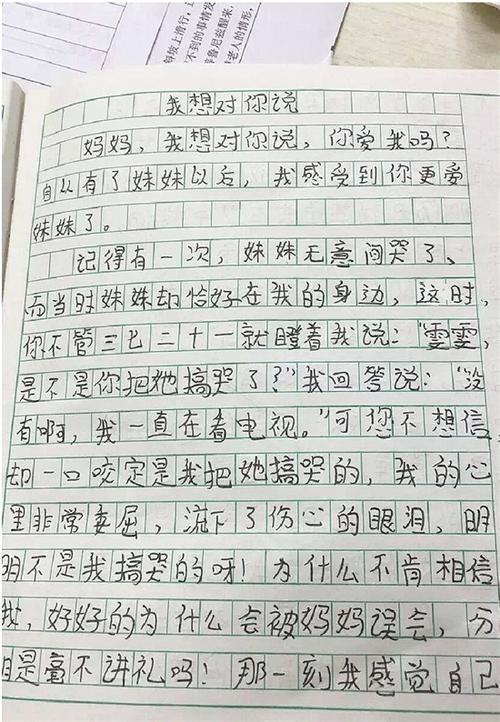 身坡上滑行,
不到的事情发
普鲁尼兹醒来,
老人的情形,
我想对你说
妈妈,我想对你说,你爱我吗?
自从有了妹妹以后,我感受到你更爱
妹妹了。
记得有一次,妹妹无意间哭了、
而当时妹妹却恰好在我的身边,这时,
你不管三七二十一就瞪着我说:“雯雯,
是不是你把她搞哭了?”我回答说:“没
有啊,我一直在看电视。”可您不想信,
却一口咬定是我把她搞哭的,我的心
里非常委屈,流下了伤心的眼泪,明
明不是我搞哭的呀!为什么不肯相信
我,好好的为什么会被妈妈误会,分
明是毫不讲礼吗!那一刻我感觉自己